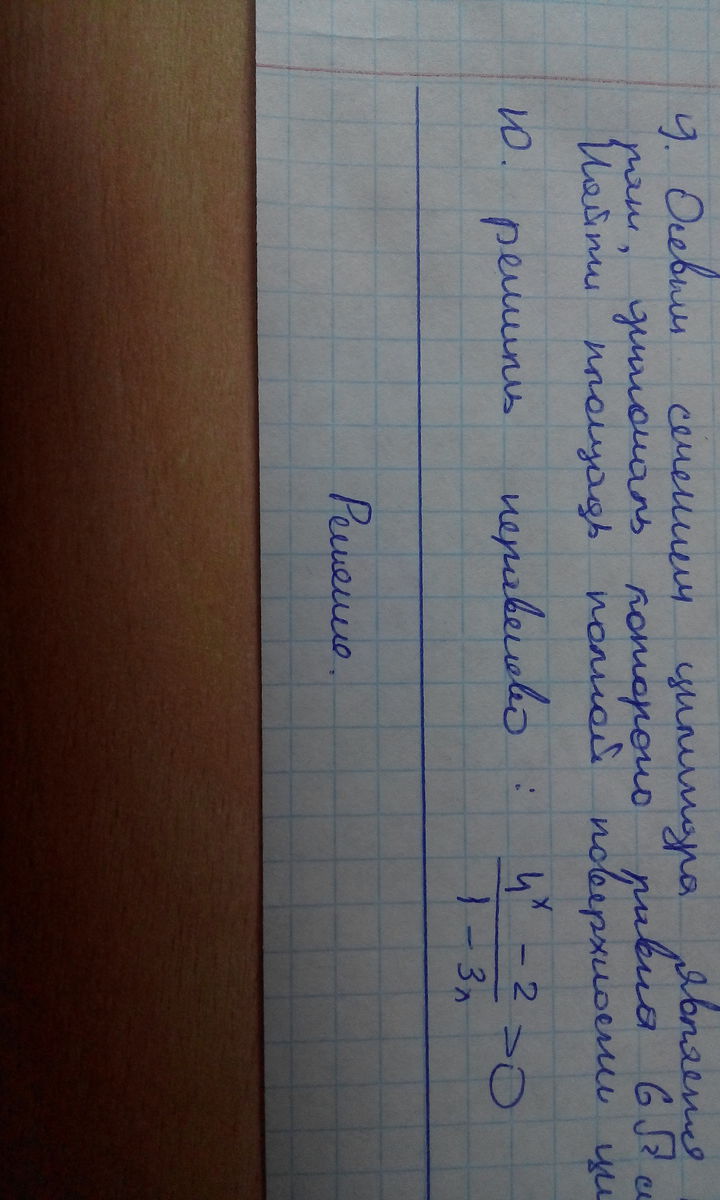 9. Осевым сечением цилиндра является
рат, диагональ которого равна 6√2 с
Найти площадь полной поверхности ци
10. решить неравенство : (4^x - 2)/(1 - 3x) > 0
Решение.